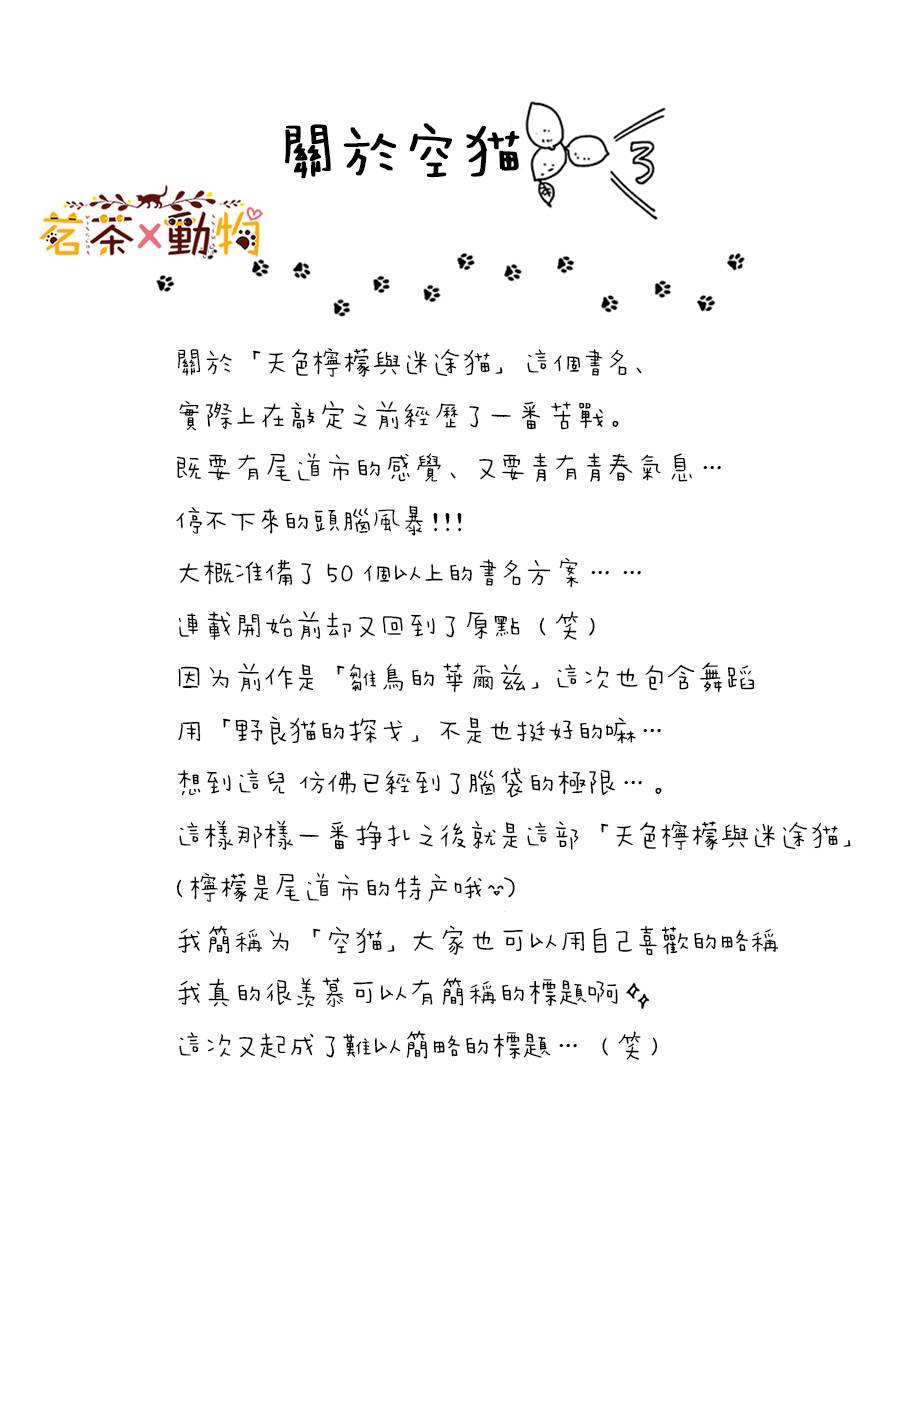 關於空猫 3
茗茶×動物
關於「天色檸檬與迷途猫」這個書名、
實際上在敲定之前經歷了一番苦戰。
既要有尾道市的感覺、又要青有青春氣息…
停不下來的頭腦風暴!!!
大概准備了50個以上的書名方案……
連載開始前却又回到了原點(笑)
因为前作是「雛鳥的華爾兹」這次也包含舞蹈
用「野良猫的探戈」不是也挺好的嘛…
想到這兒仿佛已經到了腦袋的極限…。
這樣那樣一番挣扎之後就是這部「天色檸檬與迷途猫」
(檸檬是尾道市的特产哦~)
我簡稱为「空猫」大家也可以用自己喜歡的略稱
我真的很羡慕可以有簡稱的標題啊
這次又起成了難以簡略的標題…(笑)